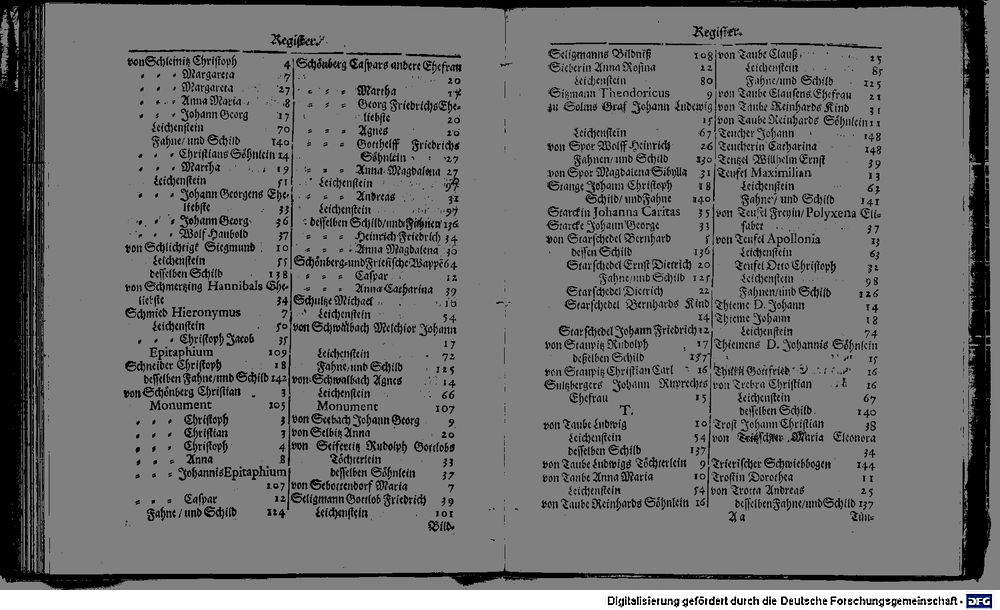 Register.
von Schleinitz Christoph 4
" " " Margareta 7
" " " Margareta 27
" " " Anna Maria 8
" " " Johann Georg 17
Leichenstein 70
Fahne/und Schild 140
" " " Christians Söhnlein 14
" " " Martha 19
Leichenstein 51
" " " Johann Georgens Ehe-
liebste 33
" " " Johann Georg 36
" " " Wolf Haubold 37
von Schlichtigk Siegmund 10
Leichenstein 55
desselben Schild 138
von Schmertzing Hannibals Ehe-
liebste 34
Schmied Hieronymus 7
Leichenstein 50
" " " Christoph Jacob 35
Epitaphium 109
Schneider Christoph 18
desselben Fahne/und Schild 142
von Schönberg Christian 3
Monument 105
" " " Christoph 3
" " " Christian 3
" " " Christoph 4
" " " Anna 8
" " " Johannis Epitaphium
107
" " " Caspar 12
Fahne/und Schild 124
Schönberg Caspars andere Ehefrau
20
" " " Martha
" " " Georg Friedrichs Ehe-
liebste 20
" " " Agnes 20
" " " Gotthelff Friedrichs
Söhnlein 27
" " " Anna Magdalena 27
Leichenstein
" " " Andreas 31
Leichenstein 97
desselben Schild/und Fahnen 136
" " " Heinrich Friedrich 34
" " " Anna Magdalena 30
Schönberg-und Friesische Wappē 64
" " " Caspar 12
" " " Anna Catharina 39
Schultze Michael 18
Leichenstein 54
von Schwalbach Melchior Johann
17
Leichenstein 72
Fahne/und Schild 125
von Schwalbach Agnes 14
Leichenstein 66
Monument 107
von Seebach Johann Georg 9
von Selbitz Anna 20
von Seifertitz Rudolph Gottlobs
Töchterlein 33
desselben Söhnlein 37
von Sebottendorf Maria 7
Seligmann Gottlob Friedrich 39
Leichenstein 101
Bild-
Register.
Seligmanns Bildniß 108
Sieberin Anna Rosina 22
Leichenstein 80
Sigmann Theodoricus 9
zu Solms Graf Johann Ludewig
15
Leichenstein 67
von Spor Wolff Heinrich 26
Fahnen/und Schild 130
von Spor Magdalena Sibylla 31
Stange Johann Christoph 18
Schild/und Fahne 140
Starckin Johanna Caritas 35
Starcke Johann George 33
von Starschedel Bernhard 5
dessen Schild 136
Starschedel Ernst Dietrich 20
Fahne/und Schild 125
Starschedel Dietrich 22
Starschedel Bernhards Kind
14
Starschedel Johann Friedrich 12
von Staupitz Rudolph 17
deßelben Schild 137
von Staupitz Christian Carl 16
Sultzbergers Johann Ruprechts
Ehefrau 15
T.
von Taube Ludwig 10
Leichenstein 54
desselben Schild 137
von Taube Ludwigs Töchterlein 9
von Taube Anna Maria 10
Leichenstein 54
von Taube Reinhards Söhnlein 16
von Taube Clauß 25
Leichenstein 85
Fahne/und Schild 125
von Taube Clausens Ehefrau 21
von Taube Reinhards Kind 31
von Taube Reinhards Söhnlein 11
Teucher Johann 148
Teucherin Catharina 148
Tentzel Willhelm Ernst 39
Teufel Maximilian 13
Leichenstein 63
Fahne/und Schild 141
von Teufel Freyin/Polyxena Eli-
sabet 37
von Teufel Apollonia 13
Leichenstein 63
Teufel Otto Christoph 32
Leichenstein 98
Fahnen/und Schild 126
Thieme D. Johann 14
Thieme Johann 18
Leichenstein 74
Thiemens D. Johannis Söhnlein
15
Gottfried 16
von Trebra Christian 16
Leichenstein 67
desselben Schild 140
Trost Johann Christian 38
von Maria Eleonora
34
Trierischer Schwiebbogen 144
Trostin Dorothea 11
von Trotta Andreas 25
desselben Fahne/und Schild 137
A a Tün-
Digitalisierung gefördert durch die Deutsche Forschungsgemeinschaft - DFG